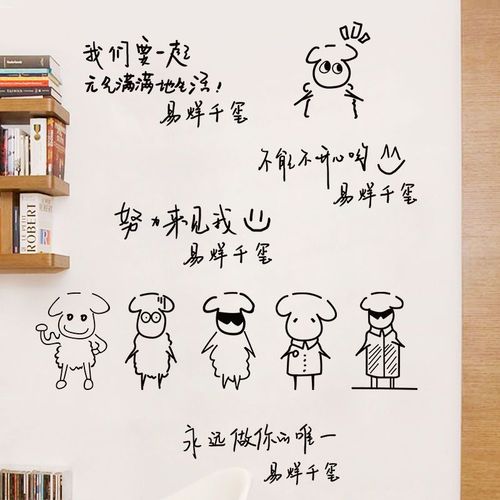 我们要一起
元气满满地生活!
易烊千玺
不能不开心哟
易烊千玺
努力来见我
易烊千玺
永远做你的唯一
易烊千玺
ROBERT